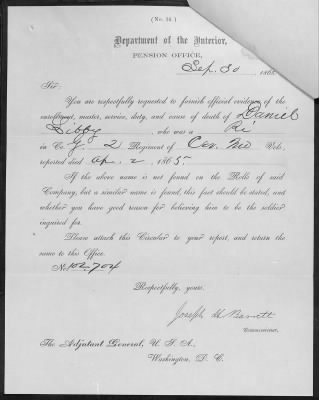 (No. 10.)
Department of the Interior,
PENSION OFFICE,
Sep. 30, 1865.
Sir:
You are respectfully requested to furnish official evidence of the
enrollment, muster, service, duty, and cause of death of Daniel
Libby, who was a Pri
in Co. G. 2 Regiment of Cav. Vols.
reported died Apr. 2, 1865
If the above name is not found on the Rolls of said
Company, but a similar name is found, this fact should be stated, and
whether you have good reason for believing him to be the soldier
inquired for.
Please attach this Circular to your report, and return the
same to this Office.
No. 102-704
Respectfully, yours,
Joseph H Barrett
Commissioner.
The Adjutant General, U. S. A.,
Washington, D. C.